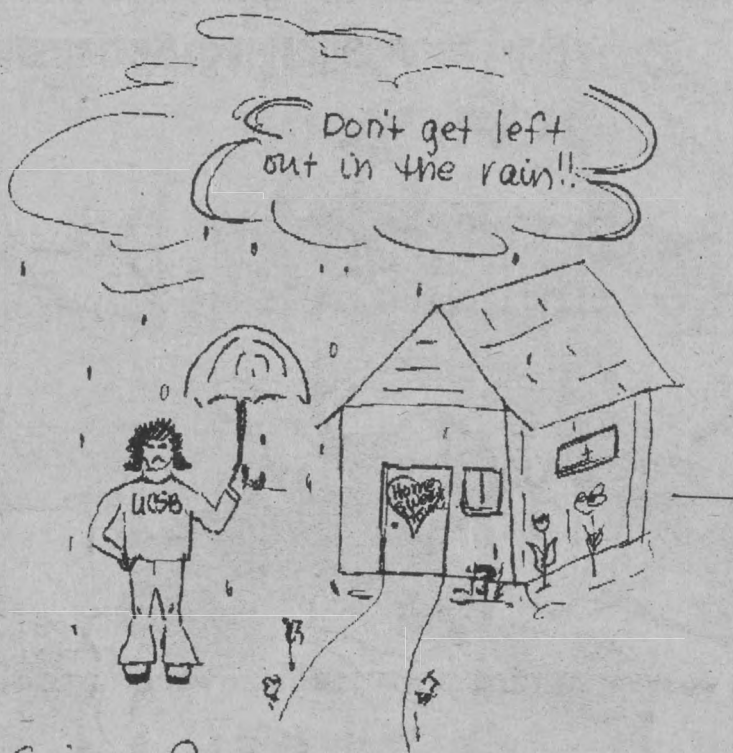 Don't get left
out in the rain!!
UCSB
Home
Sweet